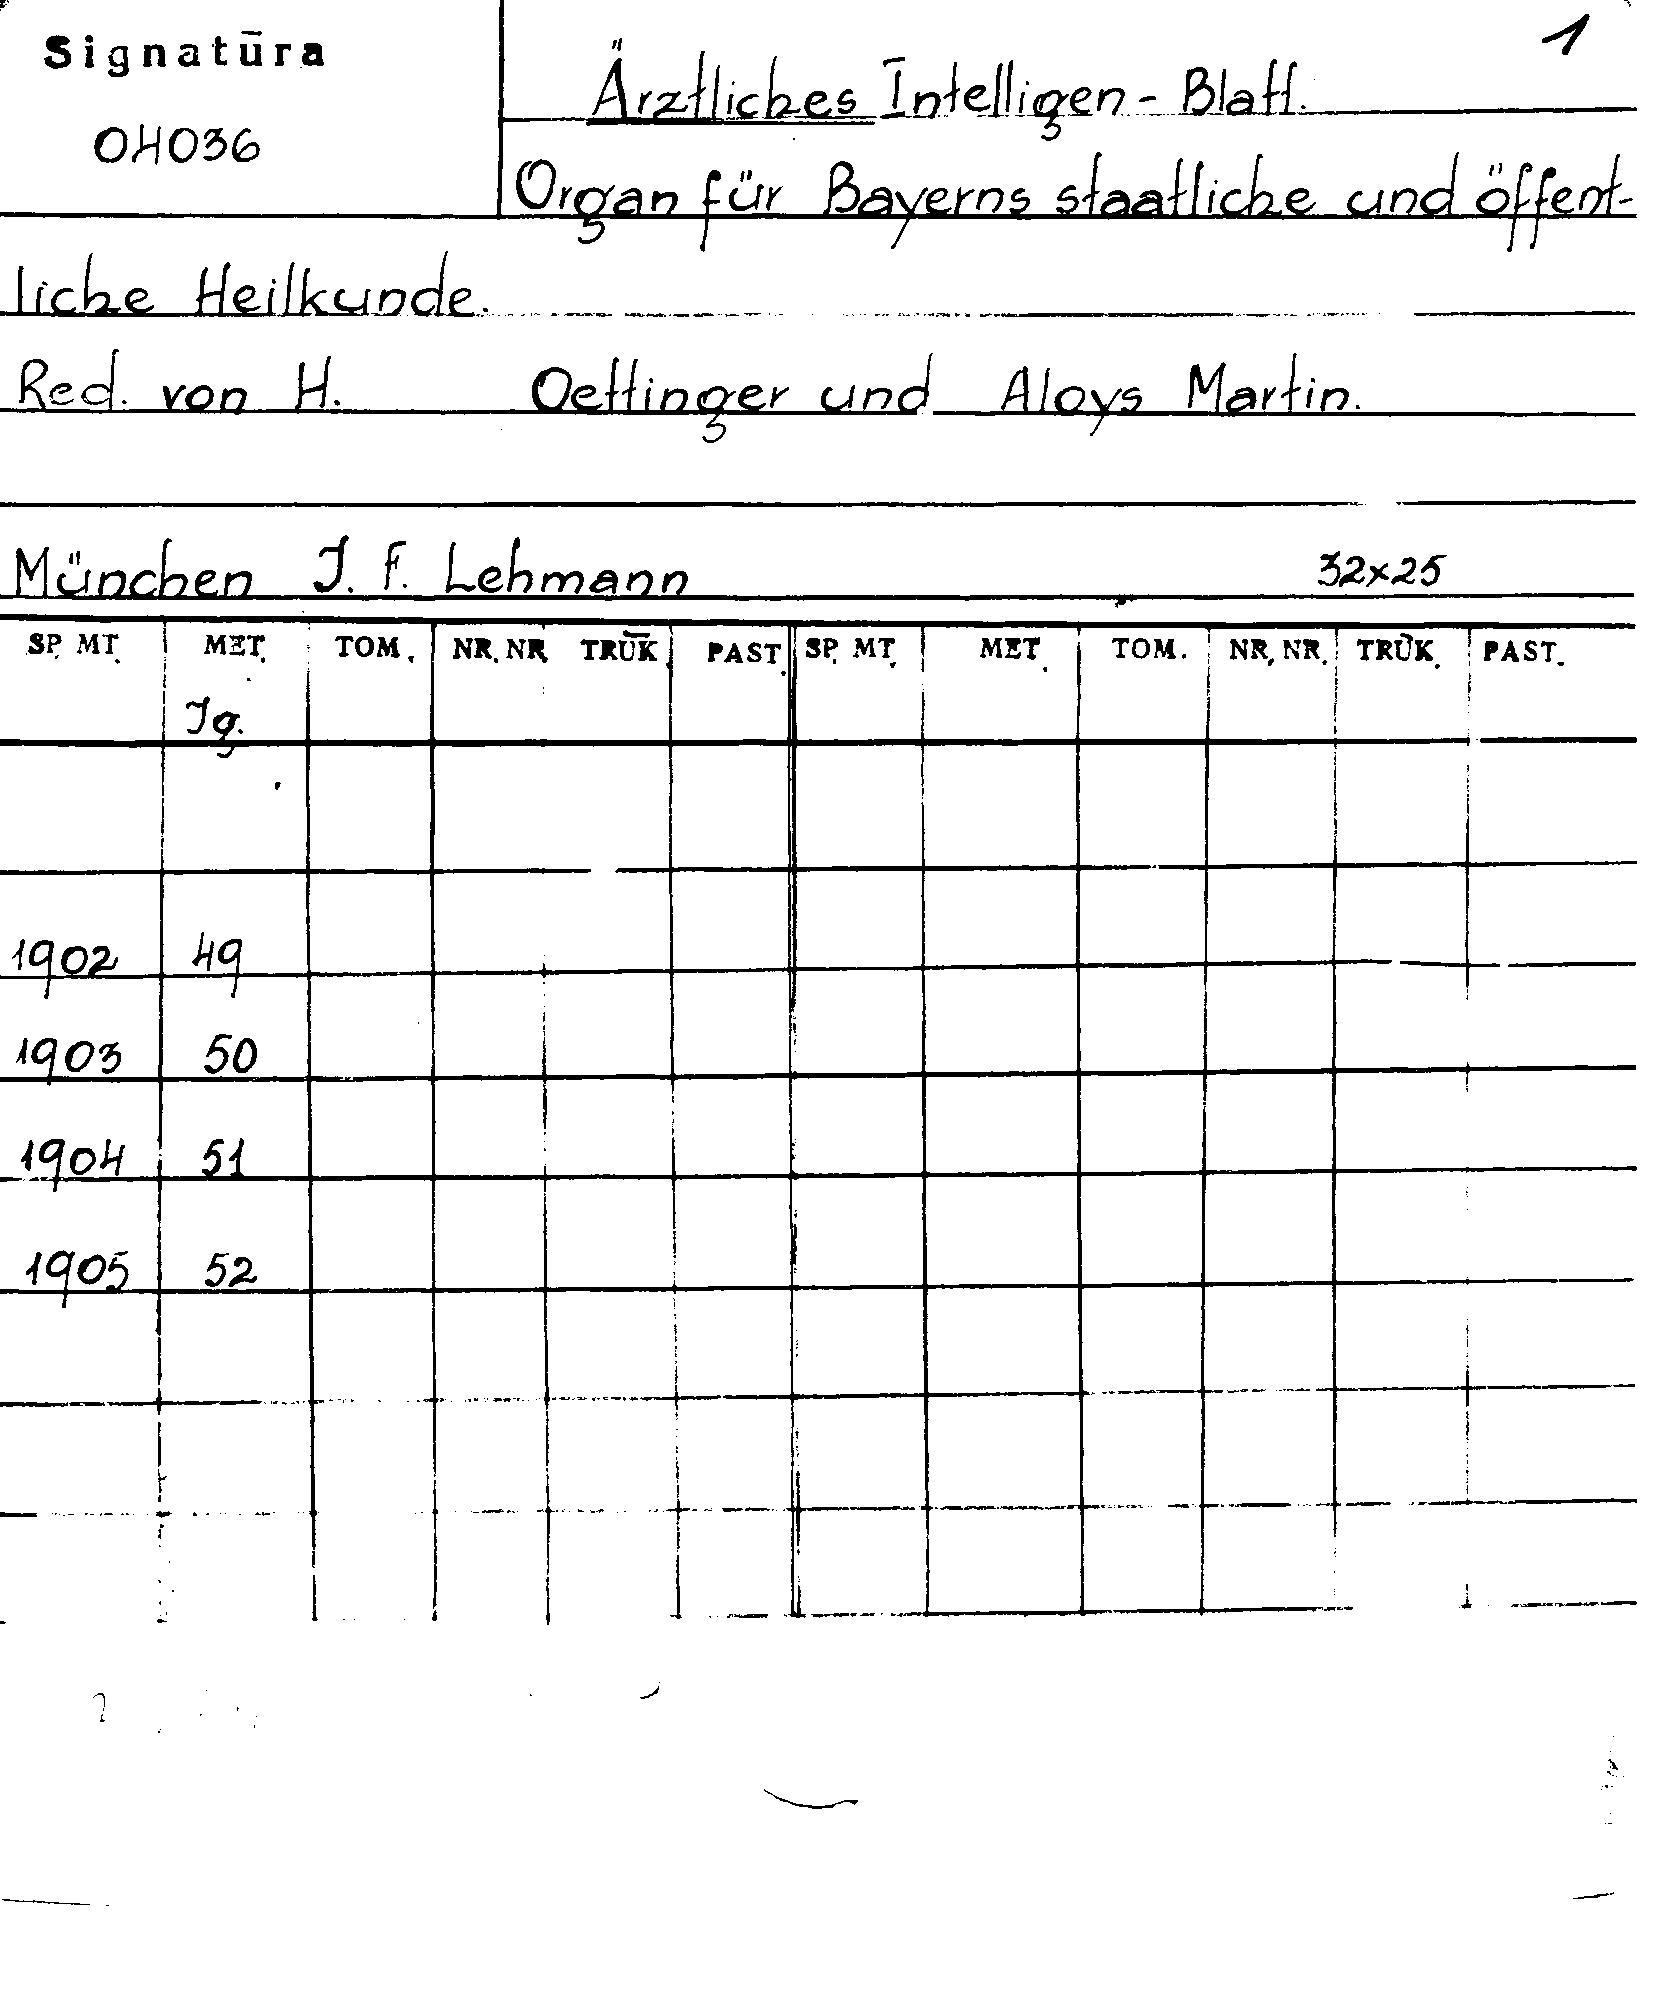 Signatūra
1
Ärztliches Intelligen - Blatt.
04036
Organ für Bayerns staatliche und öffent-
liche Heilkunde.
Red. von H. Oettinger und Aloys Martin.
München J. F. Lehmann 32x25
SP. MT. MET. TOM. NR. NR. TRŪK. PAST. SP. MT. MET. TOM. NR. NR. TRŪK. PAST.
Jg.
1902 49
1903 50
1904 51
1905 52